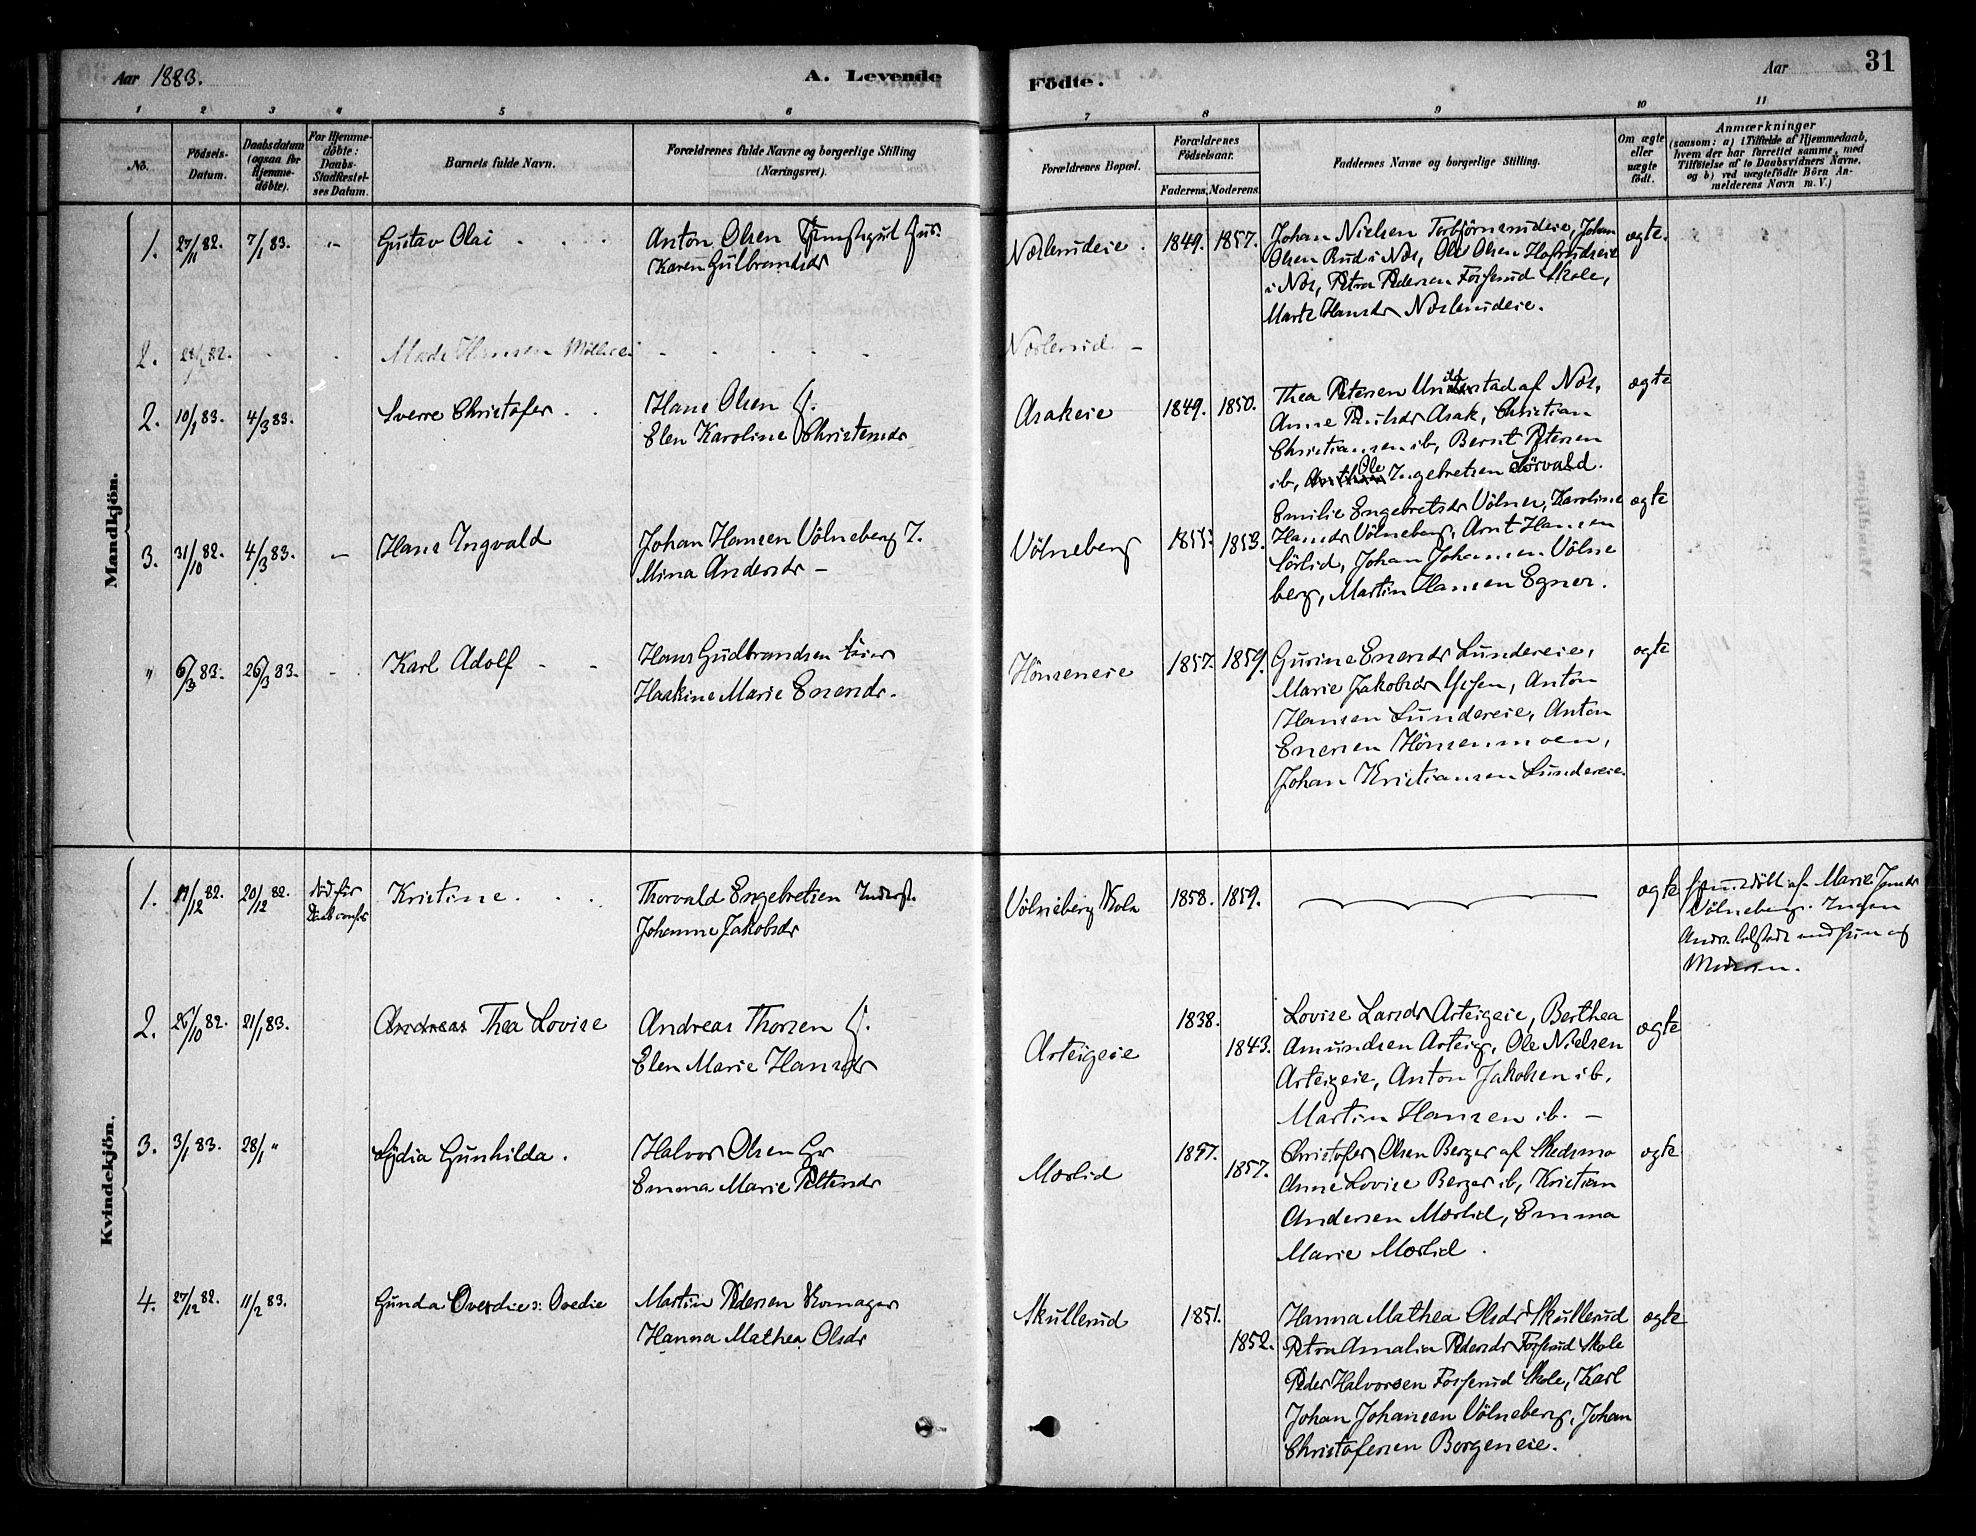 Aar 1883.
A. Levende
Födte.
Aar
31
1 2 3 4 5 6 7 8 9 10 11
No.
Födsels-Datum.
Daabsdatum (ogsaa for Hjemme-döbte).
For Hjemme-döbte: Daabs-Stadfæstel-ses Datum.
Barnets fulde Navn.
Forældrenes fulde Navne og borgerlige Stilling (Næringsvei).
Forældrenes Bopæl.
Forældrenes Födselsaar.
Faderens. Moderens.
Faddernes Navne og borgerlige Stilling.
Om ægte eller uægte födt.
Anmærkninger
(saasom: a) i Tilfælde af Hjemmedaab, hvem der har forrettet samme, med Tilföielse af to Daabsvidners Navne, og b) ved uægtefödte Börn An-melderens Navn m. V.)
Mandkjön.
1. 27/11 82. 7/1 83. Gustav Olai
Anton Olsen
Karen Gulbrandsdr
Næslerudeie. 1849. 1857.
Johan Nielsen Torbjörnsrudeie, Johan
Olsen Rud i Næs, Ole Olsen
i Næs, Petra Pedersen Fosserud Skole,
Marte Hansdr Næslerudeie.
ægte.
2. 82. Mads Hansen
Næslerud.
2. 10/1 83. 4/3 83. Sverre Christofer
Hans Olsen
Elen Karoline Christensdr
Asakeie 1849. 1850.
Thea Petersen af Næs,
Anne Paulsdr Asak, Christian
Christiansen ib, Bernt Petersen
ib, Ole Ingebretsen Sörvald.
ægte
3. 31/10 82. 4/3 83. Hans Ingvald
Johan Hansen Völneberg I.
Mina Andersdr
Völneberg 1855. 1853.
Emilie Engebretsdr Völner, Karoline
Hansdr Völneberg, Arnt Hansen
Sörlid, Johan Johansen Völne
berg, Martin Hansen Egner.
ægte
" 6/3 83. 26/3 83. Karl Adolf
Hans Gudbrandsen
Haakine Marie Enersdr.
Hönseneie 1857. 1859.
Gurine Enersdr Lundereie,
Marie Jakobsdr, Anton
Hansen Lundereie, Anton
Enersen Hönsenmoen,
Johan Kristiansen Lundereie.
ægte
Kvindekjön.
1. 17/12 82. 20/12 82. död för
Kristine.
Thorvald Engebretsen Inderst.
Johanne Jakobsdr
Völneberg Skole 1858. 1859.
ægte
af Marie
Völneberg. Ingen
2. 26/10 82. 21/1 83. Andreas Thea Lovise
Andreas Thorsen
Elen Marie Hansdr
Arteigeie 1838. 1843.
Lovise Larsdr Arteigeie, Berthea
Amundsen Arteig, Ole Nielsen
Arteigeie, Anton Jakobsen ib,
Martin Hansen ib.
ægte
3. 3/1 83. 28/1 " Lydia Gunhilda.
Halvor Olsen Gr
Emma Marie Peltersdr
Mærlid 1857. 1857.
Christofer Olsen Berger af Skedsmo
Anne Lovise Berger ib, Kristian
Andersen Mærlid, Emma
Marie Mærlid.
ægte
4. 27/12 82. 11/2 83. Gunda Overdie ɔ: Ovedie
Martin Pedersen Skomager
Hanna Mathea Olsdr
Skullerud 1851. 1852.
Hanna Mathea Olsdr Skullerud
Petra Amalia Pedersdr Fosserud Skole
Peder Halvorsen Fosserud Skole, Karl
Johan Johansen Völneberg, Johan
Christofersen Borgeneie.
ægte